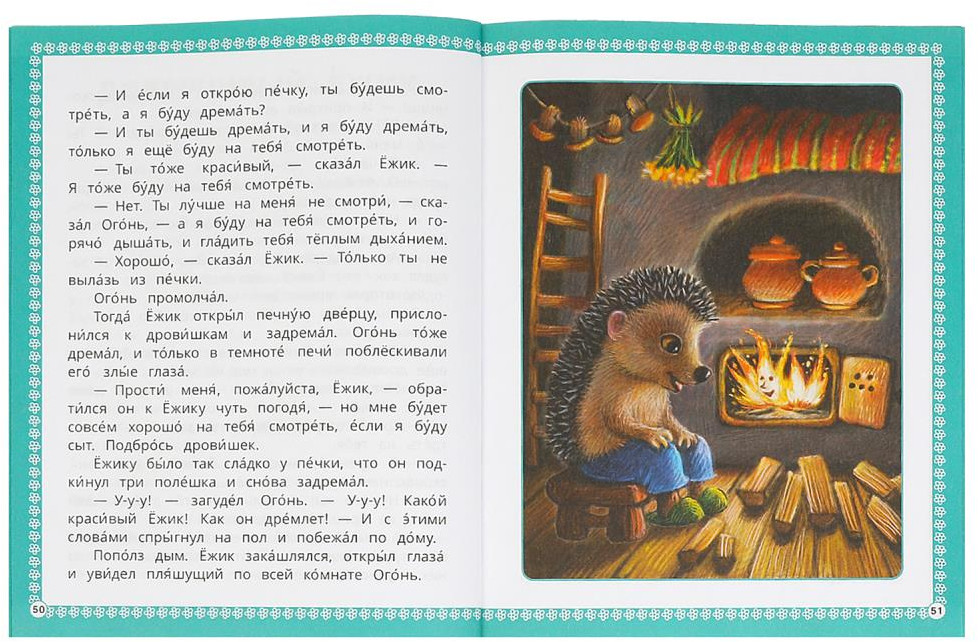 — И е́сли я откро́ю пе́чку, ты бу́дешь смо-
тре́ть, а я бу́ду дрема́ть?
— И ты бу́дешь дрема́ть, и я бу́ду дрема́ть,
то́лько я ещё бу́ду на тебя́ смотре́ть.
— Ты то́же краси́вый, — сказа́л Ёжик. —
Я то́же бу́ду на тебя́ смотре́ть.
— Нет. Ты лу́чше на меня́ не смотри́, — ска-
за́л Ого́нь, — а я бу́ду на тебя́ смотре́ть, и го-
рячо́ дыша́ть, и гла́дить тебя́ тёплым дыха́нием.
— Хорошо́, — сказа́л Ёжик. — То́лько ты не
выла́зь из пе́чки.
Ого́нь промолча́л.
Тогда́ Ёжик откры́л печну́ю две́рцу, присло-
ни́лся к дрови́шкам и задрема́л. Ого́нь то́же
дрема́л, и то́лько в темноте́ печи́ поблёскивали
его́ злы́е глаза́.
— Прости́ меня́, пожа́луйста, Ёжик, — обра-
ти́лся он к Ёжику чуть погодя́, — но мне бу́дет
совсе́м хорошо́ на тебя́ смотре́ть, е́сли я бу́ду
сыт. Подбро́сь дрови́шек.
Ёжику бы́ло так сла́дко у пе́чки, что он под-
ки́нул три поле́шка и сно́ва задрема́л.
— У-у-у! — загуде́л Ого́нь. — У-у-у! Како́й
краси́вый Ёжик! Как он дре́млет! — И с э́тими
слова́ми спры́гнул на пол и побежа́л по до́му.
Попо́лз дым. Ёжик зака́шлялся, откры́л глаза́
и уви́дел пля́шущий по всей ко́мнате Ого́нь.
50
51